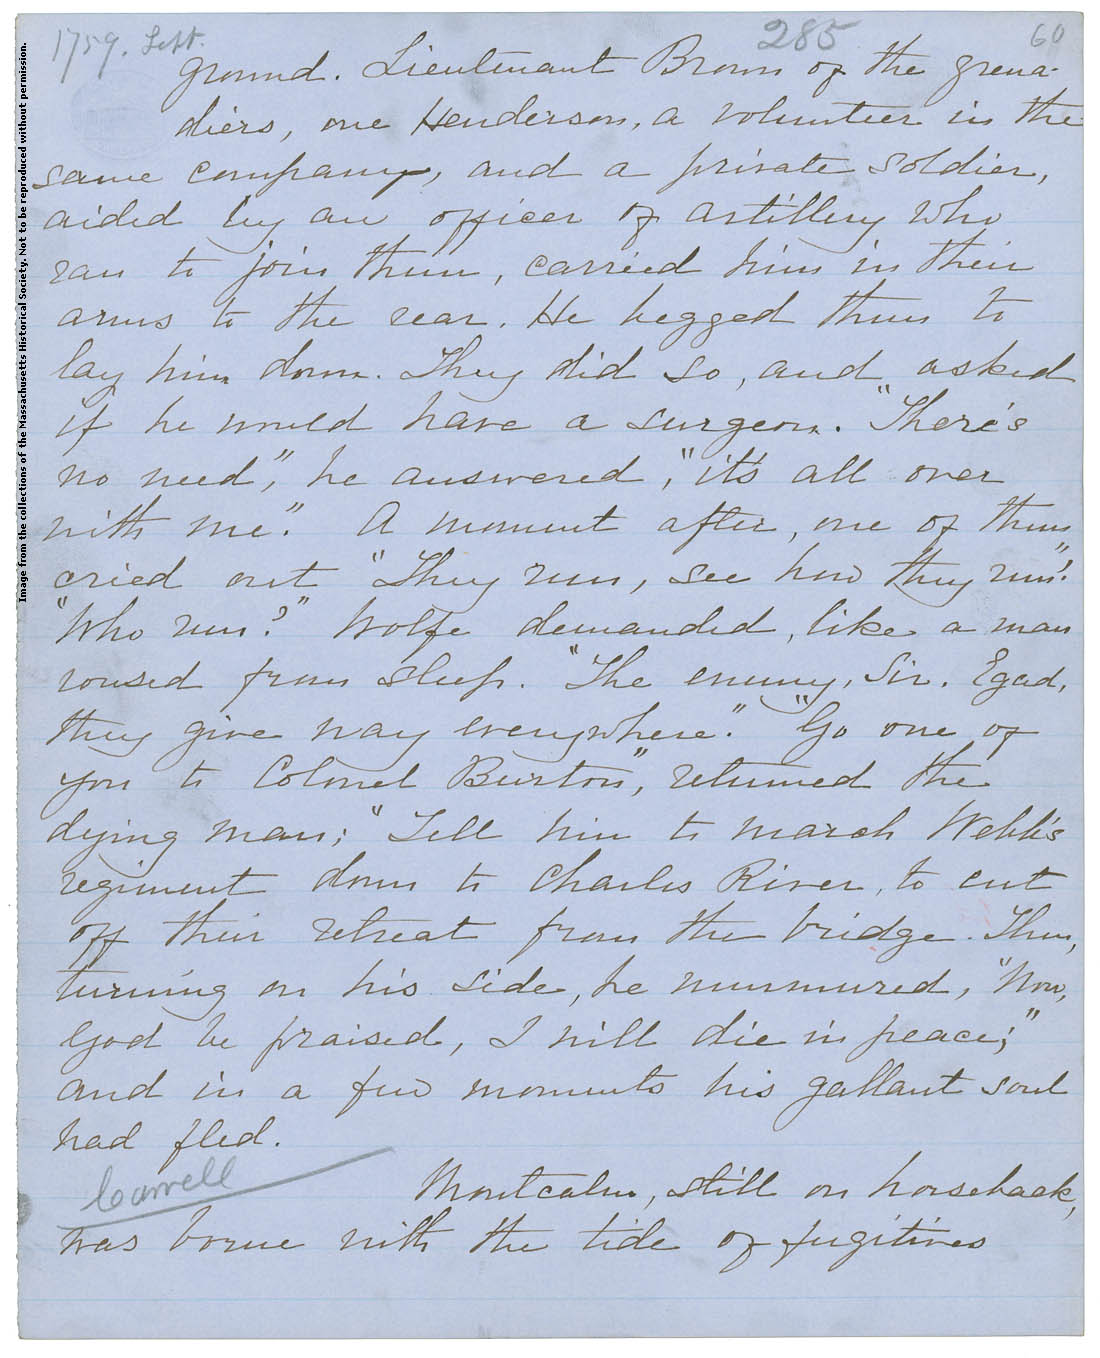 1759. Sept.
285
60
ground. Lieutenant Brown of the grena-
diers, one Henderson, a volunteer in the
same company, and a private soldier,
aided by an officer of artillery who
ran to join them, carried him in their
arms to the rear. He begged them to
lay him down. They did so, and asked
if he would have a surgeon. "There's
no need", he answered, "it's all over
with me". A moment after, one of them
cried out "They run, see how they run!"
"Who run?" Wolfe demanded, like a man
roused from sleep. "The enemy, Sir. Egad,
they give way everywhere." "Go one of
you to Colonel Burton", returned the
dying man; "Tell him to march Webb's
regiment down to Charles River, to cut
off their retreat from the bridge. Then,
turning on his side, he murmured, "Now,
God be praised, I will die in peace;"
and in a few moments his gallant soul
had fled.
Montcalm, still on horseback,
was borne with the tide of fugitives
Image from the collections of the Massachusetts Historical Society. Not to be reproduced without permission.